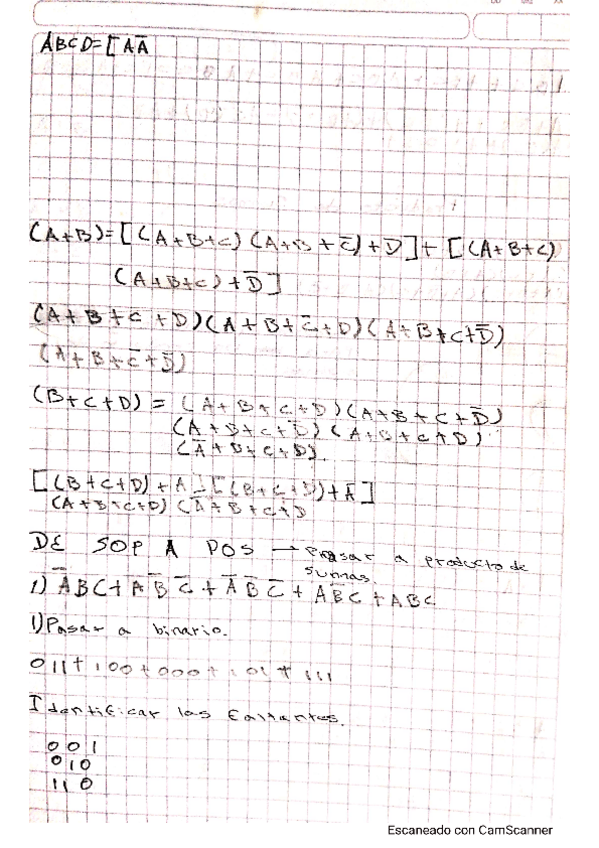 ABCD=[AA̅
(A+B)=[(A+B+C)(A+B+C̅)+D̅]+[(A+B+C)
(A+B+C)+D̅]
(A+B+C+D)(A+B+C̅+D)(A+B+C+D̅)
(A+B+C̅+D̅)
(B+C+D) = (A+B+C+D)(A+B+C+D̅)
(A+B+C+D)(A+B+C+D)
(A̅+B+C+D).
[(B+C+D)+A [(B+C+D))+A̅]
(A+B+C+D)(A̅+B+C+D
DE SOP A POS → Pasar a producto de
sumas.
1) A̅BC+AB̅C̅+A̅B̅C̅+AB̅C+ABC
1)Pasar a binario.
011+100+000+101+111
Identificar las faltantes.
001
010
110
Escaneado con CamScanner